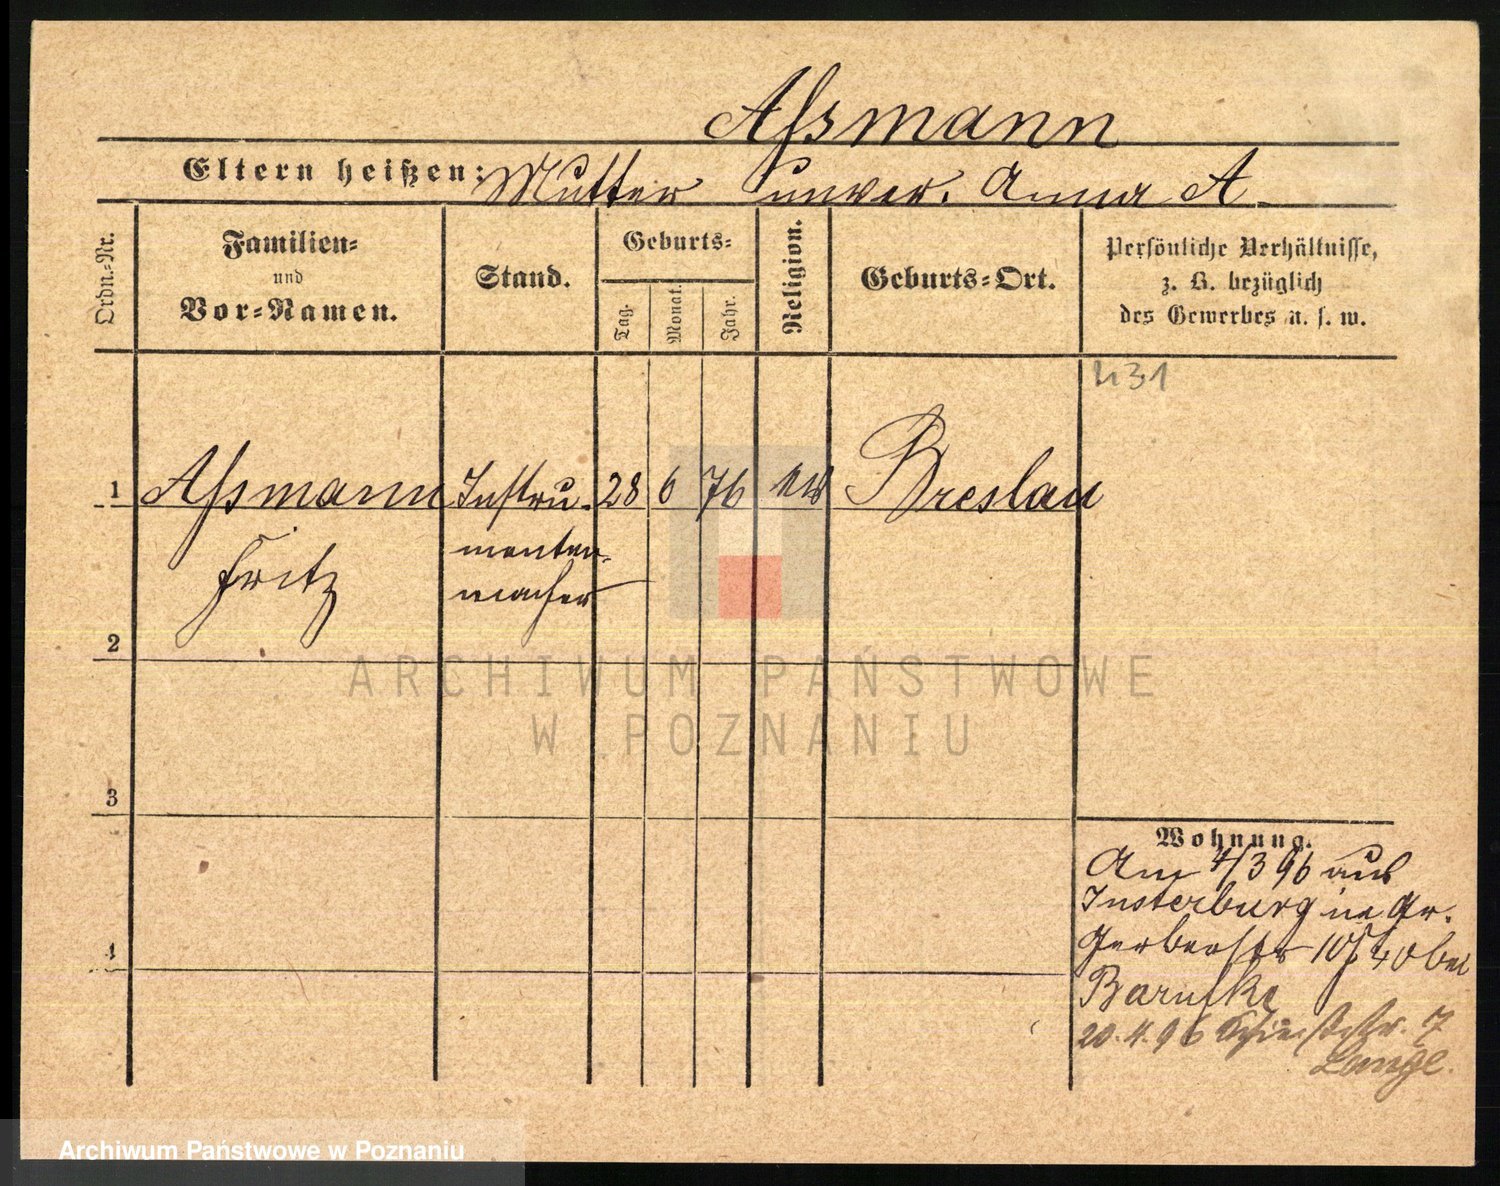 Aßmann
Eltern heißen: Mutter unver. Anna A.
Ordn.-Nr.
Familien-
und
Vor-Namen.
Stand.
Geburts-
Tag.
Monat.
Jahr.
Religion.
Geburts-Ort.
Persönliche Verhältnisse,
z. B. bezüglich
des Gewerbes u. s. w.
431
1 Aßmann Instru- 28 6 76 Breslau
menten-
Fritz
macher
2
ARCHIWUM PAŃSTWOWE
W POZNANIU
3
Wohnung.
Am 4/3 96 aus
Insterburg in Gr.
Gerberstr bei
4
20.4.96 7
Lange.
Archiwum Państwowe w Poznaniu